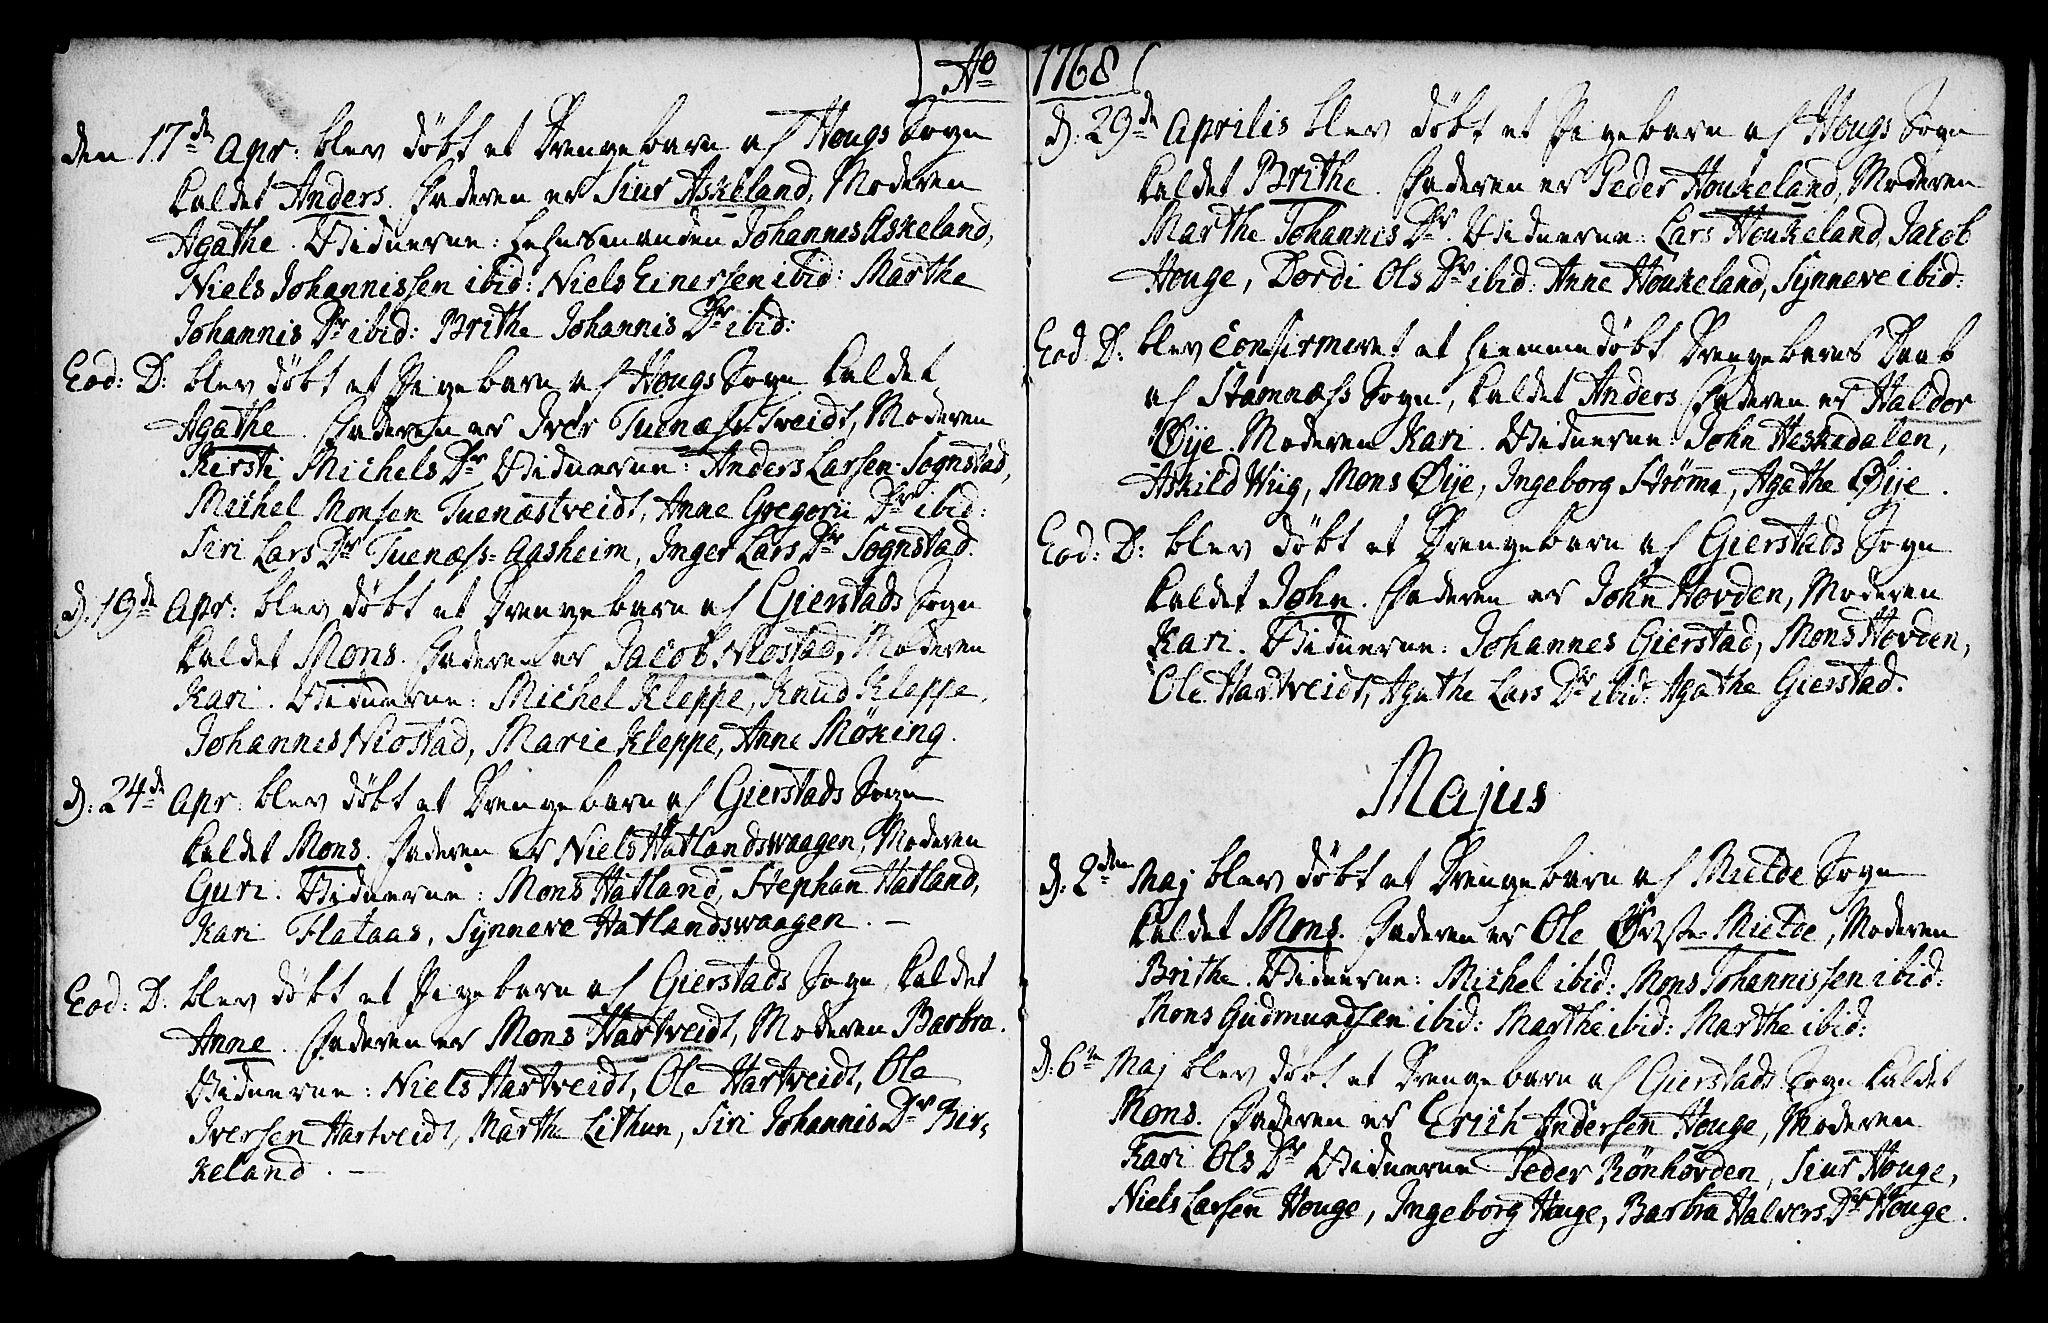 Ao 1768
den 17de Apr: blev døbt et Drengebarn af Hougs Sogn
kaldet Anders. Faderen er Siur Askeland, Moderen
Agathe. Vidnerne: Lehnsmanden Johannes Askeland,
Niels Johannissen ibid: Niels Einersen ibid: Marthe
Johannis Dr ibid: Brithe Johannis Dr ibid:
Eod: D: blev døbt et Pigebarn af Hougs Sogn kaldet
Agathe. Faderen er Iver Tuenæs-Tveidt, Moderen
Kirsti Michels Dr Vidnerne: Anders Larsen Sognstad,
Michel Monsen Tuenæstveidt, Anne Gregorii Dr ibid:
Siri Lars Dr Tuenæss-Aasheim, Inger Lars Dr Sognstad.
d: 19de Apr: blev døbt et Drengebarn af Gierstads Sogn
kaldet Mons. Faderen er Jacob Mostad, Moderen
Kari. Vidnerne: Michel Kleppe, Knud Kleppe,
Johannes Mostad, Marie Kleppe, Anne Møking.
d: 24de Apr: blev døbt et Drengebarn af Gierstads Sogn
kaldet Mons. Faderen er Niels Hatlandswaagen, Moderen
Guri. Vidnerne: Mons Hatland, Stephan Hatland,
Kari Flataas, Synneve Hatlandswaagen. —
Eod: D: blev døbt et Pigebarn af Gierstads Sogn, kaldet
Anne. Faderen er Mons Hartveidt, Moderen Barbra.
Vidnerne: Niels Hartveidt, Ole Hartveidt, Ole
Iversen Hartveidt, Marthe Lithun, Siri Johannis Dr Bir-
keland. —
d: 29de Aprilis blev døbt et Pigebarn af Hougs Sogn
kaldet Brithe. Faderen er Peder Houkeland, Moderen
Marthe Johannis Dr Vidnerne: Lars Houkeland, Jacob
Houge, Dordi Ols Dr ibid: Anne Houkeland, Synneve ibid:
Eod. D: blev Confirmeret et hiemmedøbt Drengebarns Daab
af Stamnæss Sogn, kaldet Anders Faderen er Haldor
Øije. Moderen Kari. Vidnerne: John Heskedalen,
Askild Wiig, Mons Øije, Ingeborg Strømme, Agathe Øije.
Eod: D: blev døbt et Drengebarn af Gierstads Sogn
kaldet John. Faderen er John Hovden, Moderen
Kari. Vidnerne: Johannes Gierstad, Mons Hovden,
Ole Hartveidt, Agathe Lars Dr ibid: Agathe Gierstad.
Majus
d: 2den Maj blev døbt et Drengebarn af Mielde Sogn
kaldet Mons. Faderen er Ole Øvste-Mielde, Moderen
Brithe. Vidnerne: Michel ibid: Mons Johannissen ibid:
Mons Gudmundsen ibid: Marthe ibid: Marthe ibid:
d: 6te Maj blev døbt et Drengebarn af Gierstads Sogn kaldet
Mons. Faderen er Erich Andersen Houge, Moderen
Kari Ols Dr Vidnerne Peder Rönhovden, Siur Houge,
Niels Larsen Houge, Ingeborg Houge, Barbra Halvers Dr Houge.